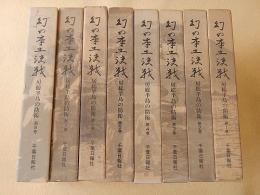 幻の本土決戦
房総半島の防衛
千葉日報社
幻の本土決戦
房総半島の防衛
千葉日報社
幻の本土決戦
房総半島の防衛
千葉日報社
幻の本土決戦
房総半島の防衛
千葉日報社
幻の本土決戦
房総半島の防衛
千葉日報社
幻の本土決戦
房総半島の防衛
千葉日報社
幻の本土決戦
房総半島の防衛
千葉日報社
幻の本土決戦
房総半島の防衛
千葉日報社